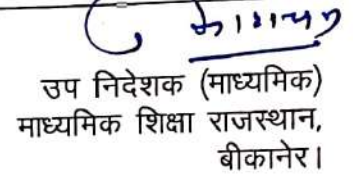 उप निदेशक (माध्यमिक)
माध्यमिक शिक्षा राजस्थान,
बीकानेर।